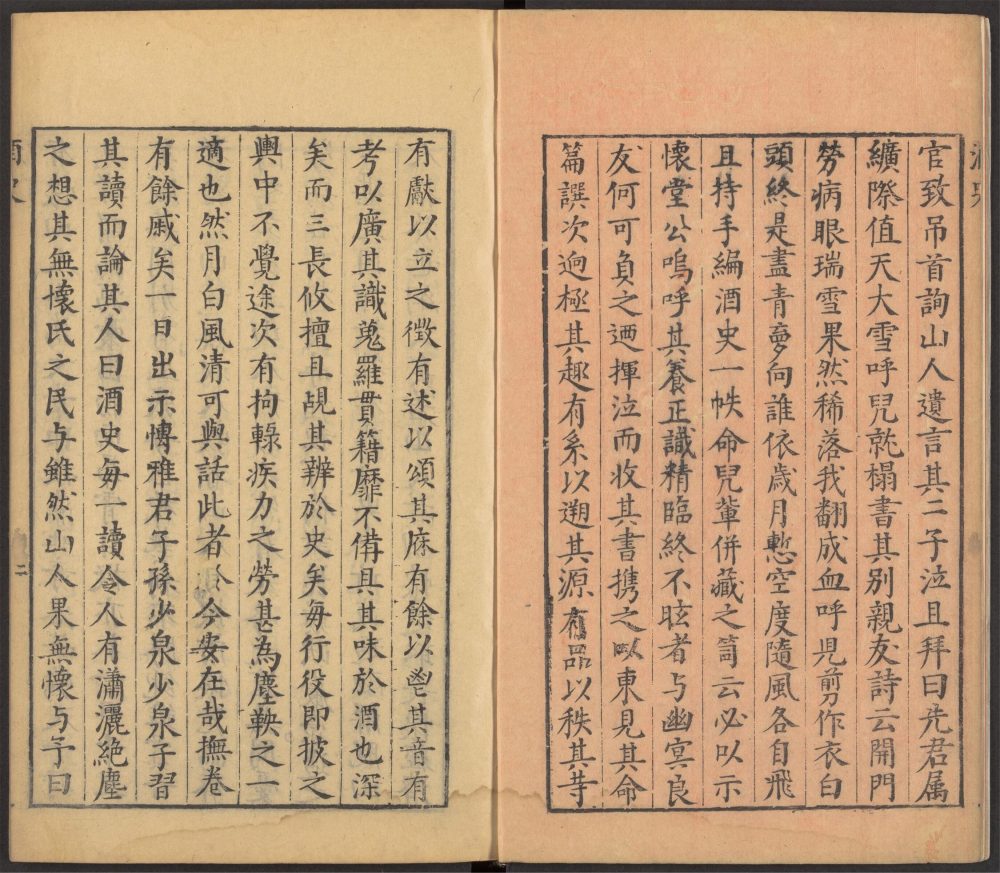 官致吊首詢山人遺言其二子泣且拜曰先君属
纊際值天大雪呼兒就榻書其别親友詩云開門
勞病眼瑞雪果然稀落我翻成血呼児剪作衣白
頭終是盡青夢向誰依歲月慙空度隨風各自飛
且持手編酒史一帙命兒輩併藏之笥云必以示
懷堂公嗚呼其養正識精臨終不眩者与幽冥良
友何可負之迺揮泣而收其書携之以東見其命
篇譔次逈極其趣有系以遡其源有品以秩其等
有獻以立之徵有述以頌其庥有餘以鬯其音有
考以廣其識蒐羅貫籍靡不俻具其味於酒也深
矣而三長攸擅且覘其辨於史矣毎行役即披之
輿中不覺途次有拘轅疾力之勞甚為塵鞅之一
適也然月白風清可與話此者今安在哉撫卷
有餘戚矣一日出示博雅君子孫少泉少泉子習
其讀而論其人曰酒史每一讀令人有瀟灑絶塵
之想其無懷氏之民与雖然山人果無懷与予曰
二